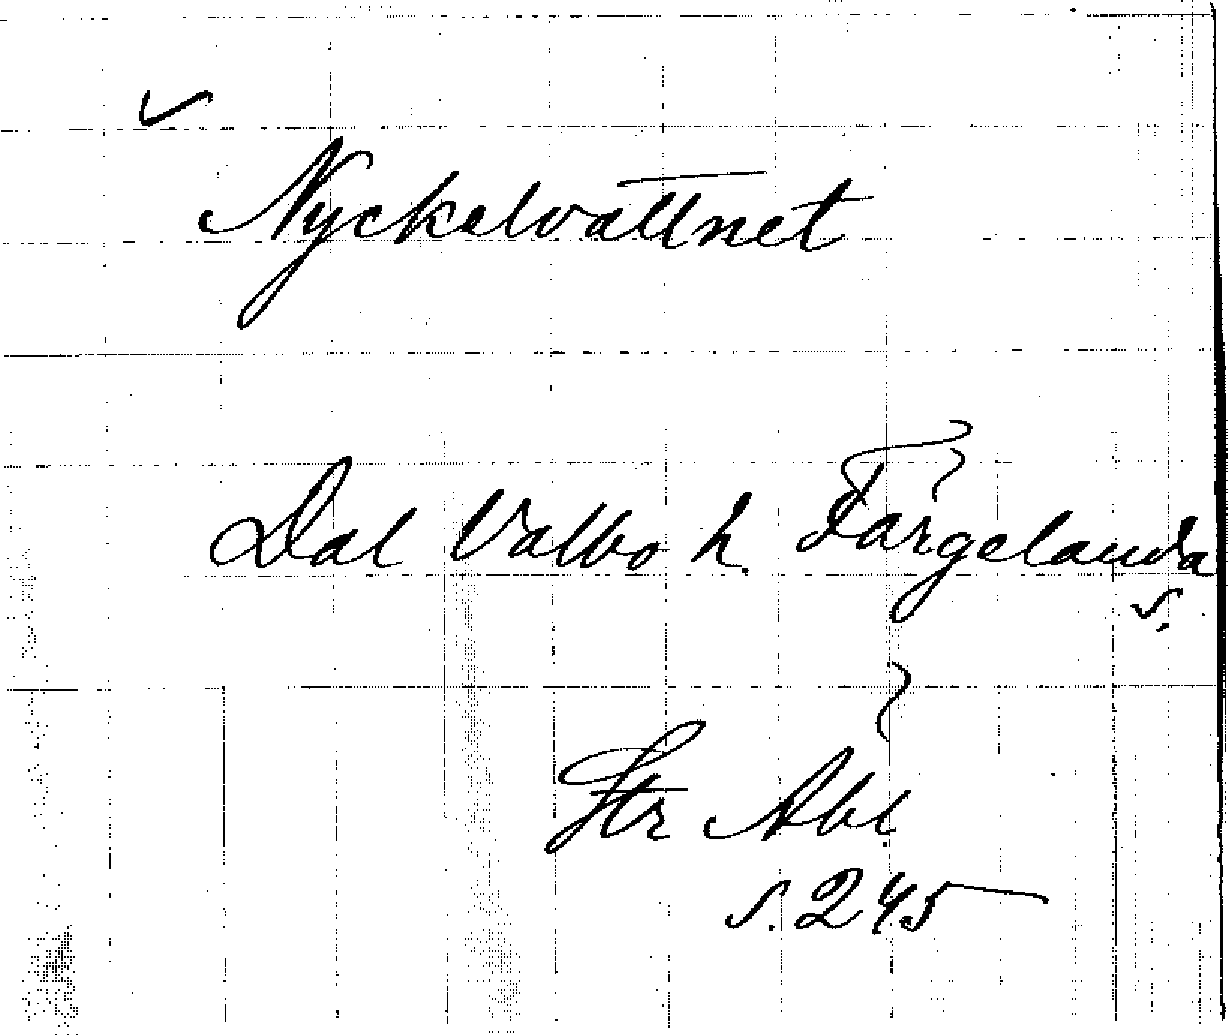 Nyckelvattnet
Dal Valbo h. Färgelanda
s.
Str Abl
s. 245